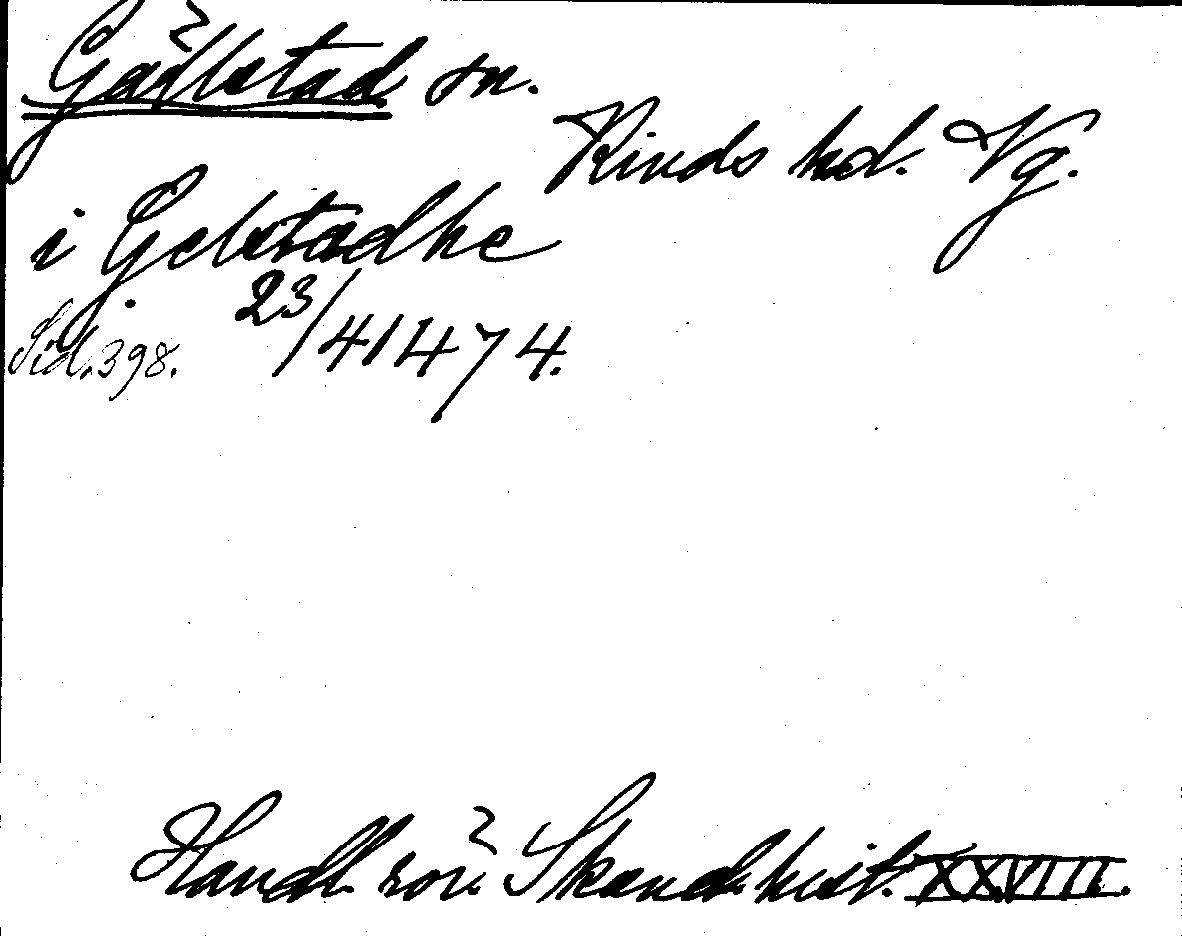 Gällstad sn.
Kinds hd. Vg.
i Gelstadhe
23/4 1474.
Sid. 398.
Handl. rör. Skand. hist. XXVIII.